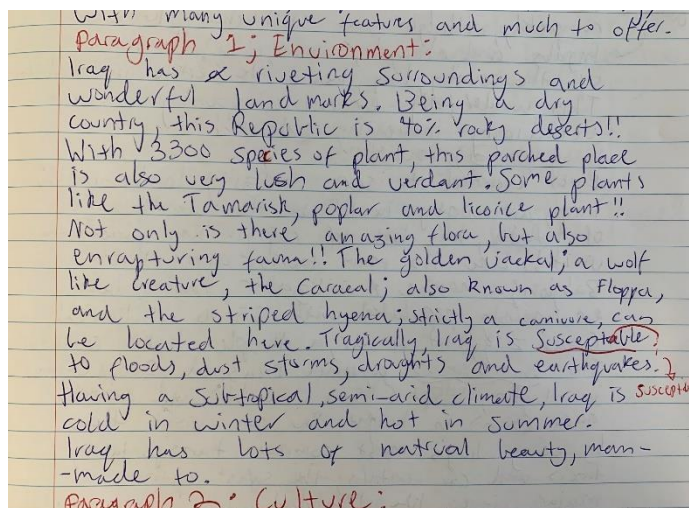 With many unique features and much to offer.
Paragraph 1; Environment:
Iraq has a riveting surroundings and
wonderful landmarks. Being a dry
country, this Republic is 40% rocky deserts!!
With 3300 species of plant, this parched place
is also very lush and verdant. Some plants
like the Tamarisk, poplar and licorice plant!!
Not only is there amazing flora, but also
enrapturing fauna!! The golden jackal; a wolf
like creature, the Caracal; also known as Floppa,
and the striped hyena; strictly a carnivore, can
be located here. Tragically, Iraq is Susceptable
to floods, dust storms, droughts and earthquakes.
Having a Subtopical, semi-arid climate, Iraq is suscepti
cold in winter and hot in summer.
Iraq has lots of natrual beauty, man-
-made to.
Paragraph 2: Culture: